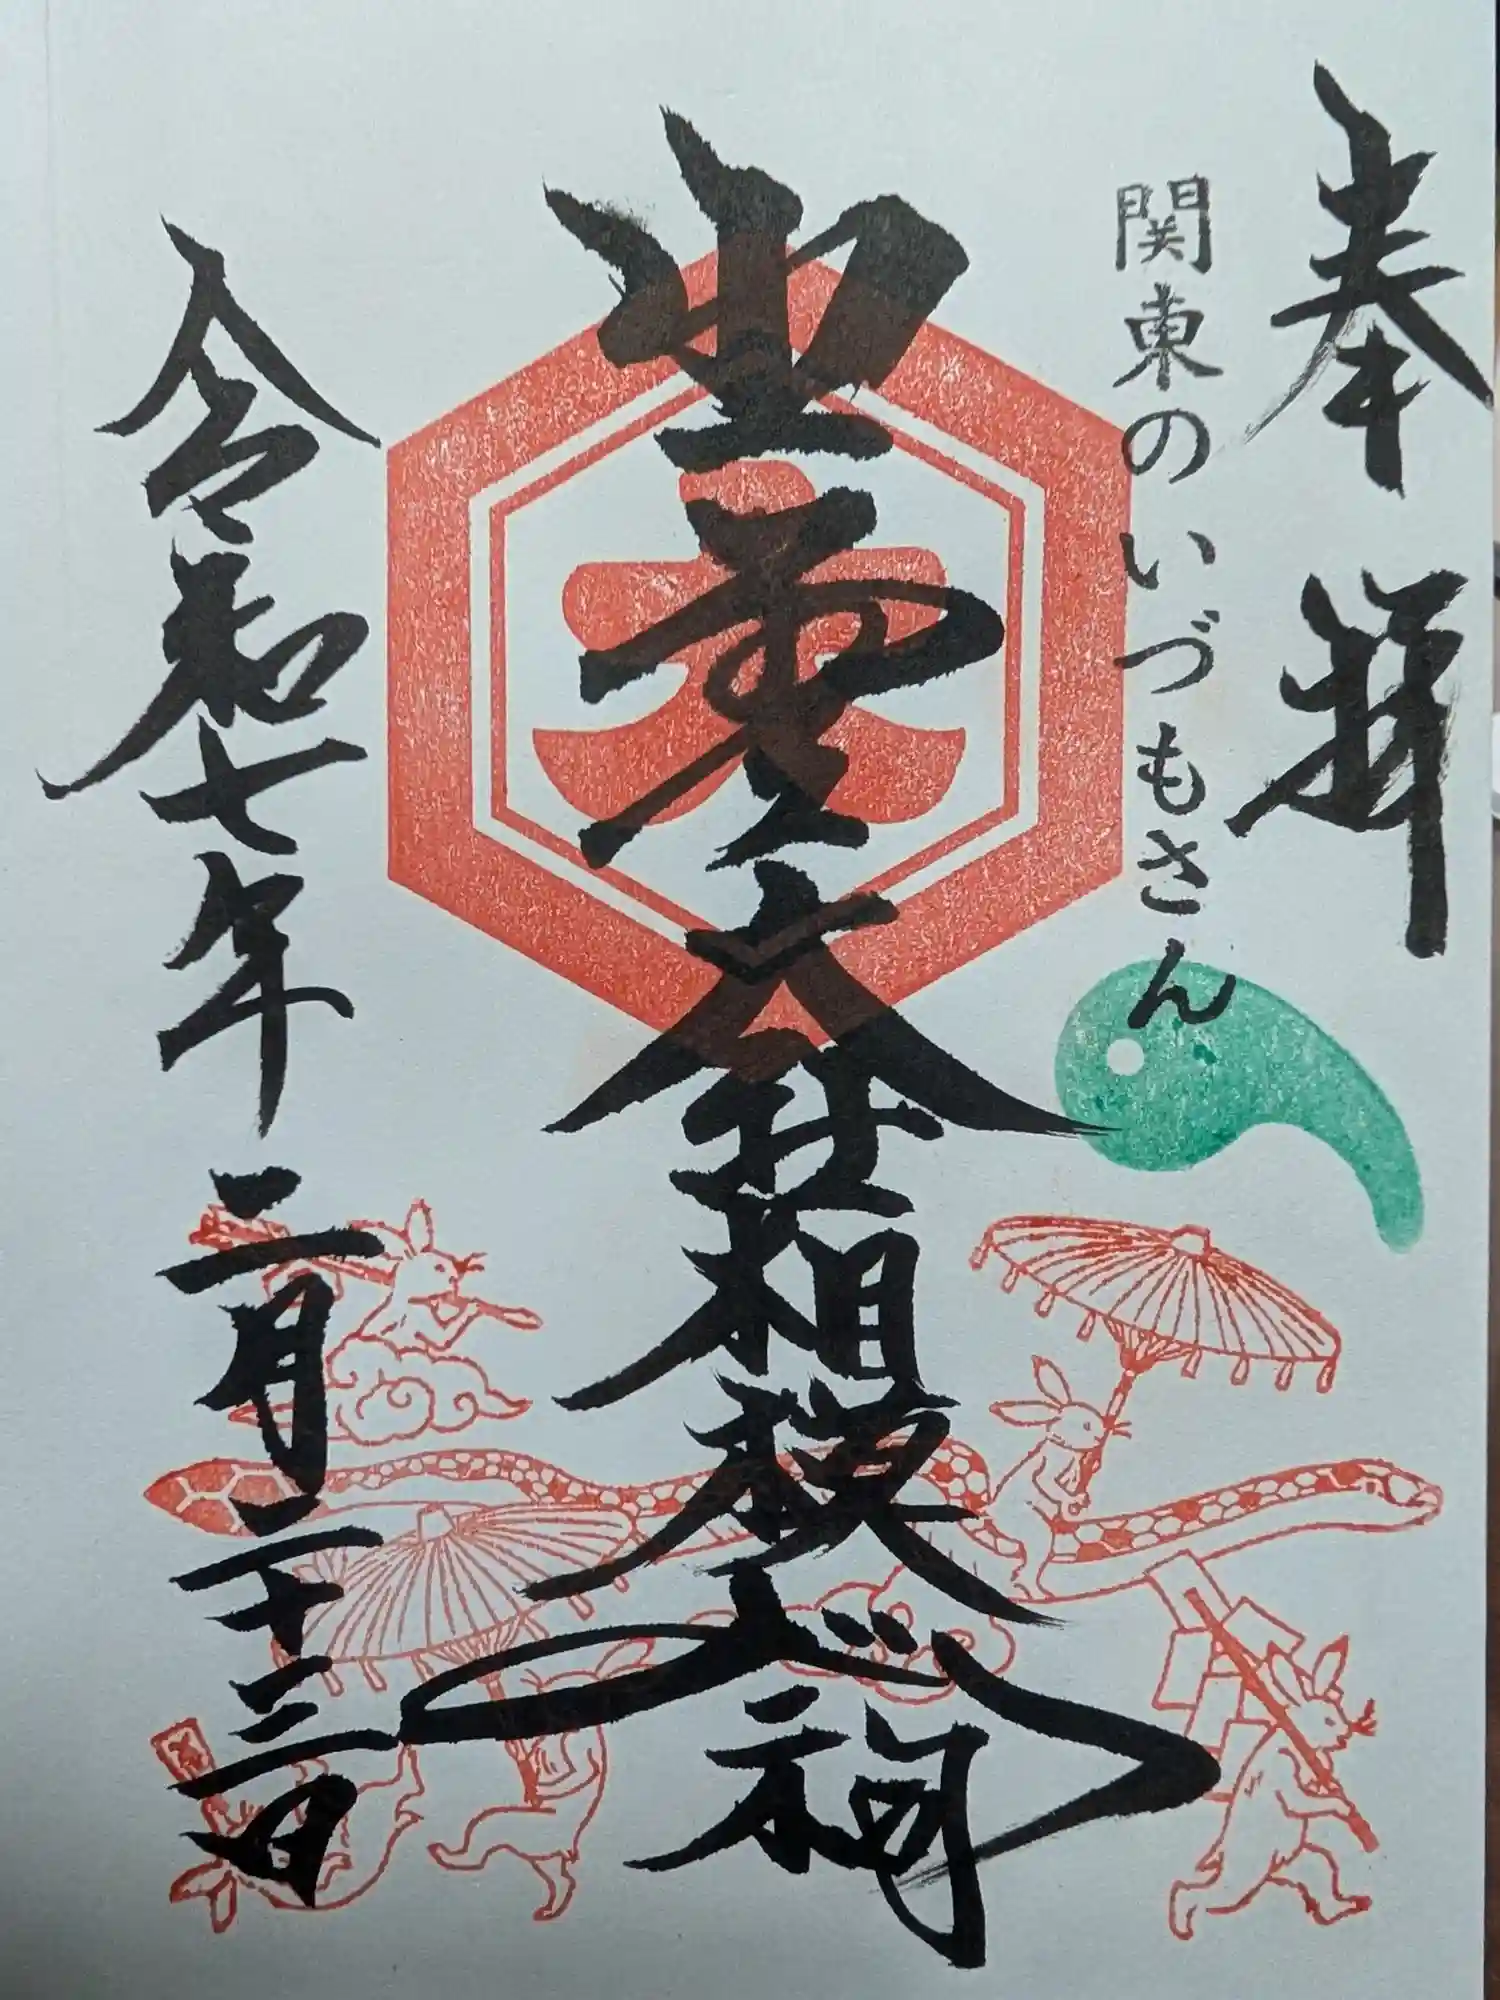 奉拝
関東のいづもさん
出雲大社相模分祠
令和七年二月二十三日
大